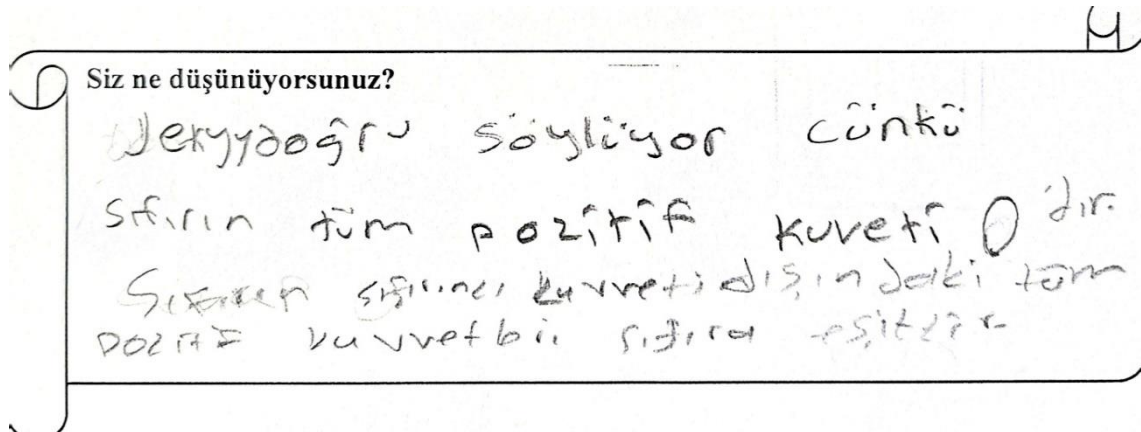 Siz ne düşünüyorsunuz?
Deryya doğru söylüyor cünkü
sıfırın tüm pozitif kuveti 0 'dır.
Sıfırın sıfırıncı kuvveti dışındaki tüm
pozitif kuvvet sıfıra eşittir